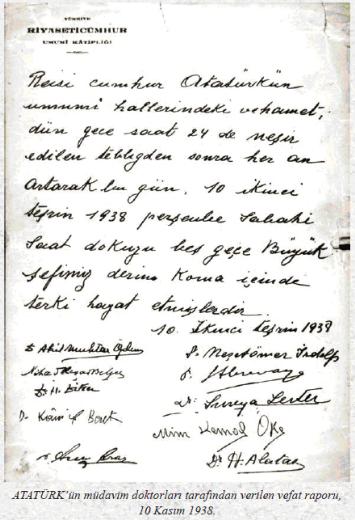 TÜRKİYE
RİYASETİCÜMHUR
UMUMİ KÂTİPLİĞİ
Reisi cumhur Atatürkün
umumi hallerindeki vehamet,
dün gece saat 24 de neşir
edilen tebliğden sonra her an
artarak bu gün, 10 ikinci
teşrin 1938 perşembe sabahı
saat dokuzu beş geçe Büyük
şefimiz derin koma içinde
terki hayat etmişlerdir.
10. İkinci teşrin 1938
Dr Akil Muhtar Özden
P. Neşetömer İrdelp
Dr. Süreya Serter
Mim Kemal Öke
Dr. H. Alataş
ATATÜRK'ün müdavim doktorları tarafından verilen vefat raporu,
10 Kasım 1938.